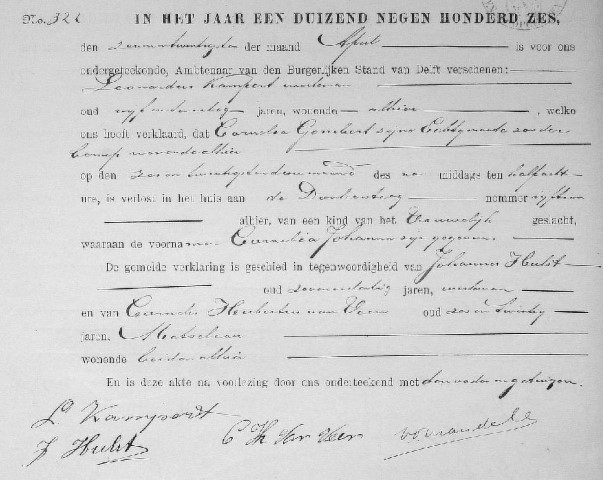 No. 322 IN HET JAAR EEN DUIZEND NEGEN HONDERD ZES,
den zevenentwintigsten der maand April is voor ons
ondergeteekende, Ambtenaar van den Burgerlijken Stand van Delft verschenen:
Leonardus Kampert
oud vijfendertig jaren, wonende alhier, welke
ons heeft verklaard, dat Cornelia Gombert zijne Echtgenoote zonder
beroep wonende alhier
op den zesentwintigsten dezer maand des na middags ten half acht
ure, is verlost in het huis aan de nommer vijftien
alhier, van een kind van het Vrouwelijk geslacht,
waaraan de voornamen Cornelia Johanna zijn gegeven
De gemelde verklaring is geschied in tegenwoordigheid van Johannes Hulst
oud jaren,
en van van Veen oud zesentwintig
jaren, Metselaar
wonende beiden alhier
En is deze akte na voorlezing door ons onderteekend met den vader en getuigen.
L. Kampert
J Hulst